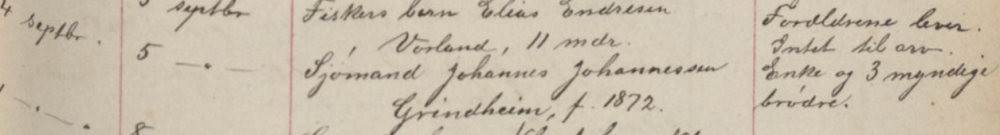 4 septbr. septbr Fiskers barn Elias Endresen Forældrene lever.
Vorland, 11 mdr. Intet til arv.
5 — " — Sjömand Johannes Johannessen Enke og 3 myndige
— " — Grindheim, f. 1872. brödre.
8